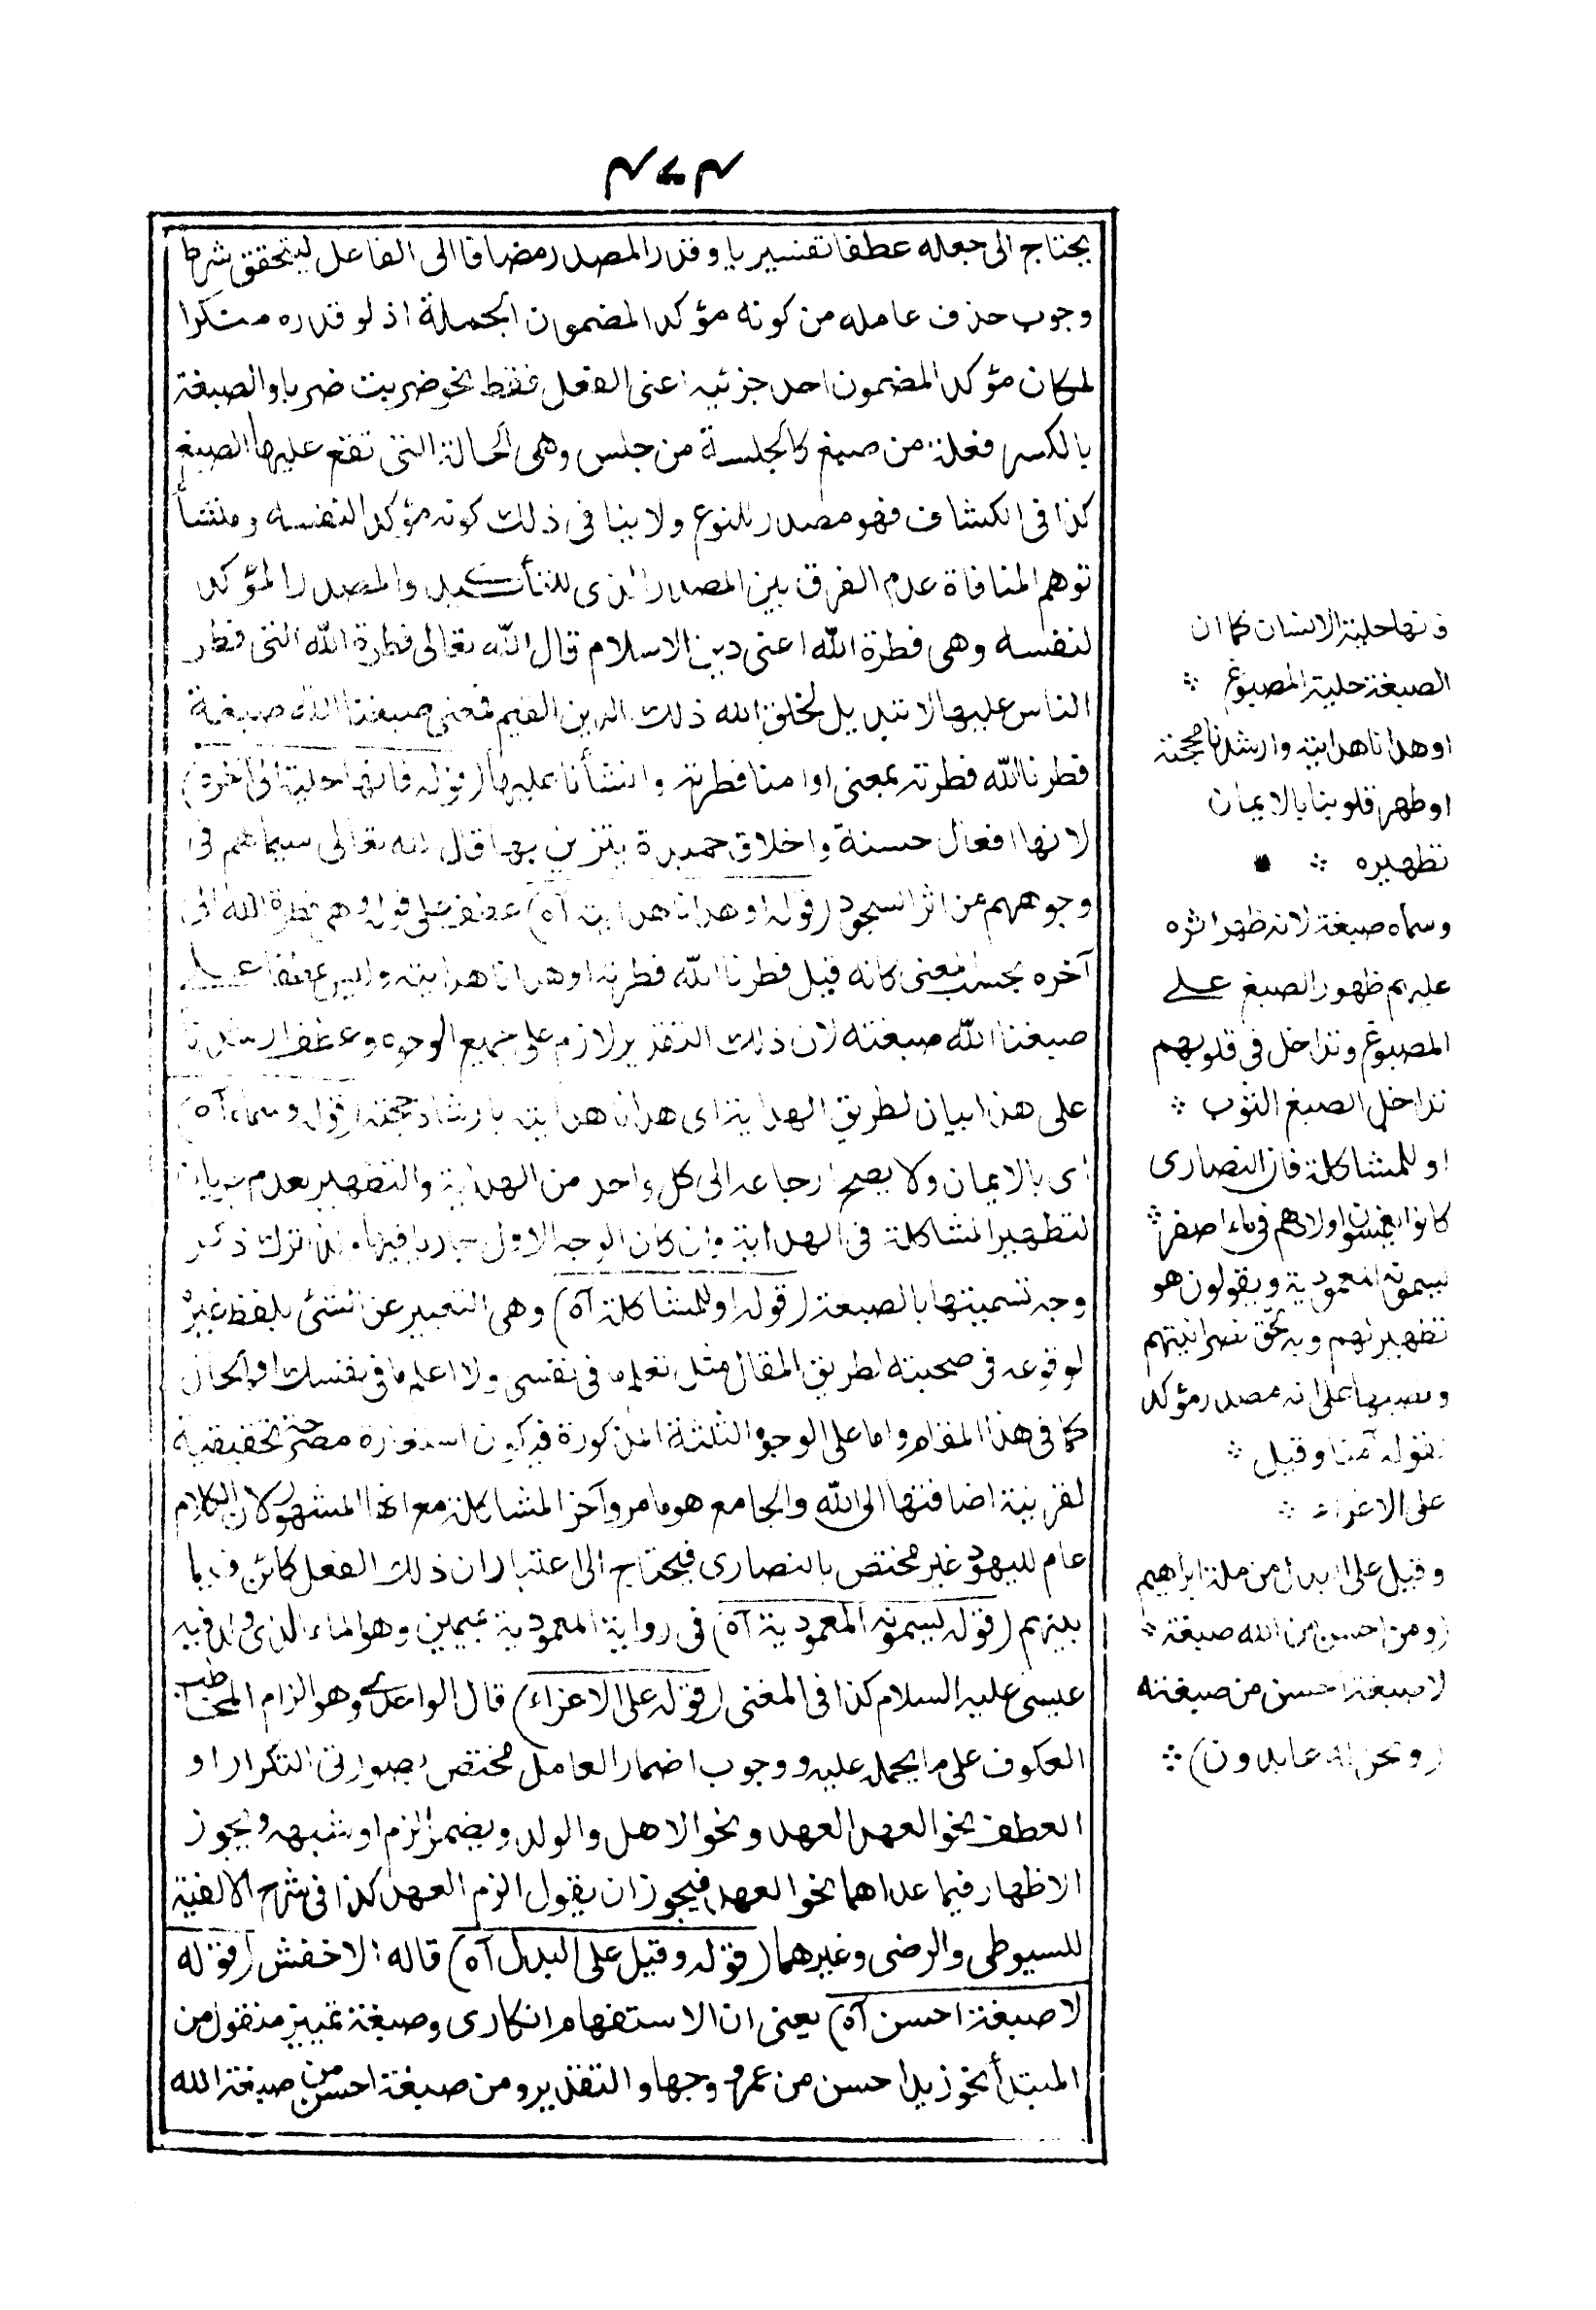 يحتاج الى جعله عطفا تفسيريا وقدر المصدر مضافا الى الفاعل ليتحقق شرط
وجوب حذف عامله من كونه مؤكدا لمضمون الجملة اذ لو قدره منكرا
لكان مؤكدا لمضمون احد جزئيه اعنى الفعل فقط نحو ضربت ضربا والصبغة
بالكسر فعلة من صبغ كالجلسة من جلس وهى الحالة التى تقع عليها الصبغ
كذا فى الكشاف فهو مصدر للنوع ولا ينافى ذلك كونه مؤكدا لنفسه ومنشأ
توهم المنافاة عدم الفرق بين المصدر الذى للتأكيد والمصدر المؤكد
لنفسه وهى فطرة الله اعنى دين الاسلام قال الله تعالى فطرة الله التى فطر
الناس عليها لا تبديل لخلق الله ذلك الدين القيم فمعنى صبغنا الله صبغة
فطرنا الله فطرته بمعنى اوامنا فطرته وانشأنا عليها (قوله فانها حلية الى آخره)
لانها افعال حسنة واخلاق حميدة يتزين بها قال الله تعالى سيماهم فى
وجوههم من اثر السجود (قوله او هدانا هدايته آه) عطف على قوله وهى فطرة الله الى
آخره بحسب المعنى كانه قيل فطرنا الله فطرته او هدانا هدايته وليس عطفا على
صبغنا الله صبغته لان ذلك التقدير لازم على جميع الوجوه وعطف ارشدنا
على هذا بيان لطريق الهداية اى هدانا هدايته بارشاد حجته (قوله وسماه آه)
اى بالايمان ولا يصح ارجاعه الى كل واحد من الهداية والتطهير لعدم جريان
لتطهير المشاكلة فى الهداية وان كان الوجه الاول جاريا فيها ولذا ترك ذكر
وجه تسميتها بالصبغة (قوله او للمشاكلة آه) وهى التعبير عن الشئ بلفظ غيره
لوقوعه فى صحبته بطريق المقال مثل تعلم ما فى نفسى ولا اعلم ما فى نفسك او الحال
كما فى هذا المقام واما على الوجوه الثلثة المذكورة فيكون استعارة مصرحة تحقيقية
لقرينة اضافتها الى الله والجامع هو ما مر وآخر المشاكلة مع انها المشهور لان الكلام
عام لليهود غير مختص بالنصارى فيحتاج الى اعتبار ان ذلك الفعل كائن فيما
بينهم (قوله يسمونه المعمودية آه) فى رواية المعمودية بميمين وهو الماء الذى ولد فيه
عيسى عليه السلام كذا فى المغنى (قوله على الاغراء) قال الواحدى وهو الزام المخاطب
العكوف على ما يحمله عليه ووجوب اضمار العامل مختص بصورتى التكرار او
العطف نحو العهد العهد ونحو الاهل والولد ويضمر الزم او شبهه ويجوز
الاظهار فيما عداهما نحو العهد فيجوز ان يقول الزم العهد كذا فى شرح الالفية
للسيوطى والرضى وغيرهما (قوله وقيل على البدل آه) قاله الاخفش (قوله
لا صبغة احسن آه) يعنى ان الاستفهام انكارى وصبغة تمييز منقول من
المبتدأ نحو زيد احسن من عمرو وجها والتقدير ومن صبغة احسن من صبغة الله
فانها حلية الانسان كما ان
الصبغة حلية المصبوغ
او هدانا هدايته وارشدنا حجته
او طهر قلوبنا بالايمان
تطهيره
وسماه صبغة لانه ظهر اثره
عليهم ظهور الصبغ على
المصبوغ وتداخل فى قلوبهم
تداخل الصبغ الثوب
او للمشاكلة فان النصارى
كانوا يغمسون اولادهم فى ماء اصفر
يسمونه المعمودية ويقولون هو
تطهير لهم وبه تحق نصرانيتهم
ونصبها على انه مصدر مؤكد
لقوله آمنا وقيل
على الاغراء
وقيل على البدل من ملة ابراهيم
(ومن احسن من الله صبغة
لا صبغة احسن من صبغته
(ونحن له عابدون)